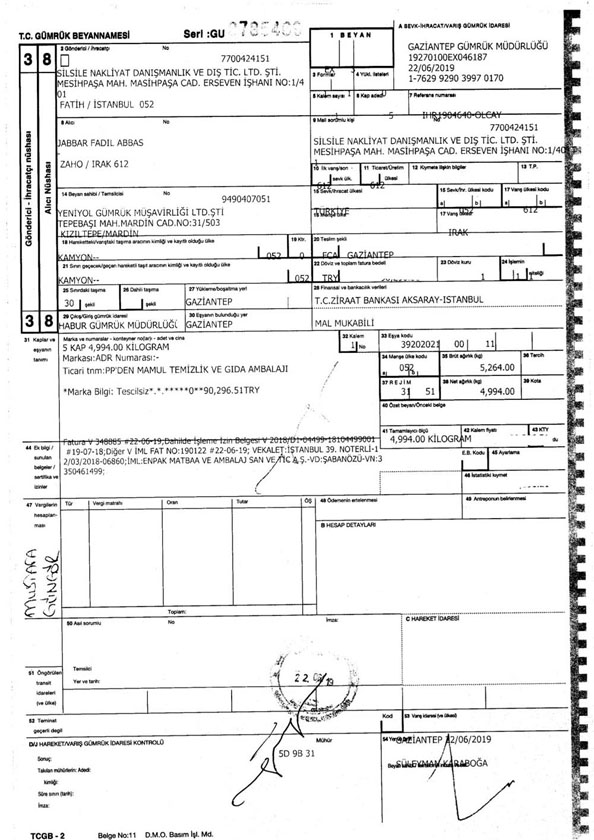 T.C. GÜMRÜK BEYANNAMESİ
Seri :GU
1 BEYAN
A SEVK-İHRACAT/VARIŞ GÜMRÜK İDARESİ
GAZİANTEP GÜMRÜK MÜDÜRLÜĞÜ
19270100EX046187
22/06/2019
1-7629 9290 3997 0170
3 8
2 Gönderici / İhracatçı No
7700424151
SİLSİLE NAKLİYAT DANIŞMANLIK VE DIŞ TİC. LTD. ŞTİ.
MESİHPAŞA MAH. MASİHPAŞA CAD. ERSEVEN İŞHANI NO:1/4
01
FATİH / İSTANBUL 052
3 Formlar
4 Yük. listeleri
5 Kalem sayısı
6 Kap adedi
7 Referans numarası
1
5
IHR1904640-OLCAY
Gönderici - İhracatçı nüshası
Alıcı Nüshası
8 Alıcı No
JABBAR FADIL ABBAS
ZAHO / IRAK 612
9 Mali sorumlu kişi No
7700424151
SİLSİLE NAKLİYAT DANIŞMANLIK VE DIŞ TİC. LTD. ŞTİ.
MESİHPAŞA MAH. MASİHPAŞA CAD. ERSEVEN İŞHANI NO:1/40
10 İlk varış/son sevk ülk.
11 Ticaret/Üretim ülkesi
12 Kıymetle ilgili bilgiler
13 T.P.
612
612
14 Beyan sahibi / Temsilcisi No
9490407051
YENİYOL GÜMRÜK MÜŞAVİRLİĞİ LTD.ŞTİ
TEPEBAŞI MAH.MARDİN CAD.NO:31/503
KIZILTEPE/MARDİN
15 Sevk/İhracat ülkesi
TÜRKİYE
15 Sevk/İhr. ülkesi kodu
a| b|
052
17 Varış ülkesi kodu
a| b|
612
16 Menşe ülke
17 Varış ülkesi
IRAK
18 Hareketteki/varıştaki taşıma aracının kimliği ve kayıtlı olduğu ülke
19 Ktr.
KAMYON--
052
0
20 Teslim şekli
FCA GAZİANTEP
21 Sınırı geçecek/geçen hareketli taşıt aracının kimliği ve kayıtlı olduğu ülke
KAMYON--
052
22 Döviz ve toplam fatura bedeli
TRY
23 Döviz kuru
1
24 İşlemin niteliği
1 1
25 Sınırdaki taşıma şekli
30
26 Dahili taşıma şekli
27 Yükleme/boşaltma yeri
GAZİANTEP
28 Finansal ve bankacılık verileri
T.C.ZİRAAT BANKASI AKSARAY-İSTANBUL
MAL MUKABİLİ
3 8
29 Çıkış/Giriş gümrük idaresi
HABUR GÜMRÜK MÜDÜRLÜĞÜ
30 Eşyanın bulunduğu yer
GAZİANTEP
31 Kaplar ve eşyanın tanımı
Marka ve numaralar - konteyner no(lar) - adet ve cins
5 KAP 4,994.00 KİLOGRAM
Markası:ADR Numarası:-
Ticari tnm:PP'DEN MAMUL TEMİZLİK VE GIDA AMBALAJI
*Marka Bilgi: Tescilsiz*.*.*****0**90,296.51TRY
32 Kalem No
1
33 Eşya kodu
39202021 00 11
34 Menşe ülke kodu
a| b|
052
35 Brüt ağırlık (kg)
5,264.00
36 Tercih
37 REJİM
31 51
38 Net ağırlık (kg)
4,994.00
39 Kota
40 Özet beyan/Önceki belge
41 Tamamlayıcı ölçü
4,994.00 KİLOGRAM
42 Kalem fiyatı
43 KTY
du
44 Ek bilgi / sunulan belgeler / sertifika ve izinler
Fatura V 348885 #22-06-19;Dahilde İşleme İzin Belgesi V 2018/D1-04499-18104499001
#19-07-18;Diğer V İML FAT NO:190122 #22-06-19; VEKALET:İSTANBUL 39. NOTERLİ-1
2/03/2018-06860;İML:ENPAK MATBAA VE AMBALAJ SAN VE TİC A.Ş.-VD:ŞABANÖZÜ-VN:3
350461499;
E.B. Kodu
45 Ayarlama
46 İstatistiki kıymet
47 Vergilerin hesaplanması
Tür Vergi matrahı Oran Tutar ÖŞ
Toplam:
48 Ödemenin ertelenmesi
49 Antreponun belirlenmesi
B HESAP DETAYLARI
MUSTAFA
GÜNGÖR
50 Asıl sorumlu No
İmza:
C HAREKET İDARESİ
Temsilci
Yer ve tarih:
51 Öngörülen transit idareleri (ve ülke)
52 Teminat geçerli değil
Kod
53 Varış idaresi (ve ülkesi)
D/J HAREKET/VARIŞ GÜMRÜK İDARESİ KONTROLÜ
Mühür
5D 9B 31
Sonuç:
Takılan mühürlerin: Adedi:
kimliği:
Süre sınırı (tarih):
İmza:
GAZİANTEP 22/06/2019
SÜLEYMAN KARABOĞA
TCGB - 2
Belge No:11 D.M.O. Basım İşl. Md.